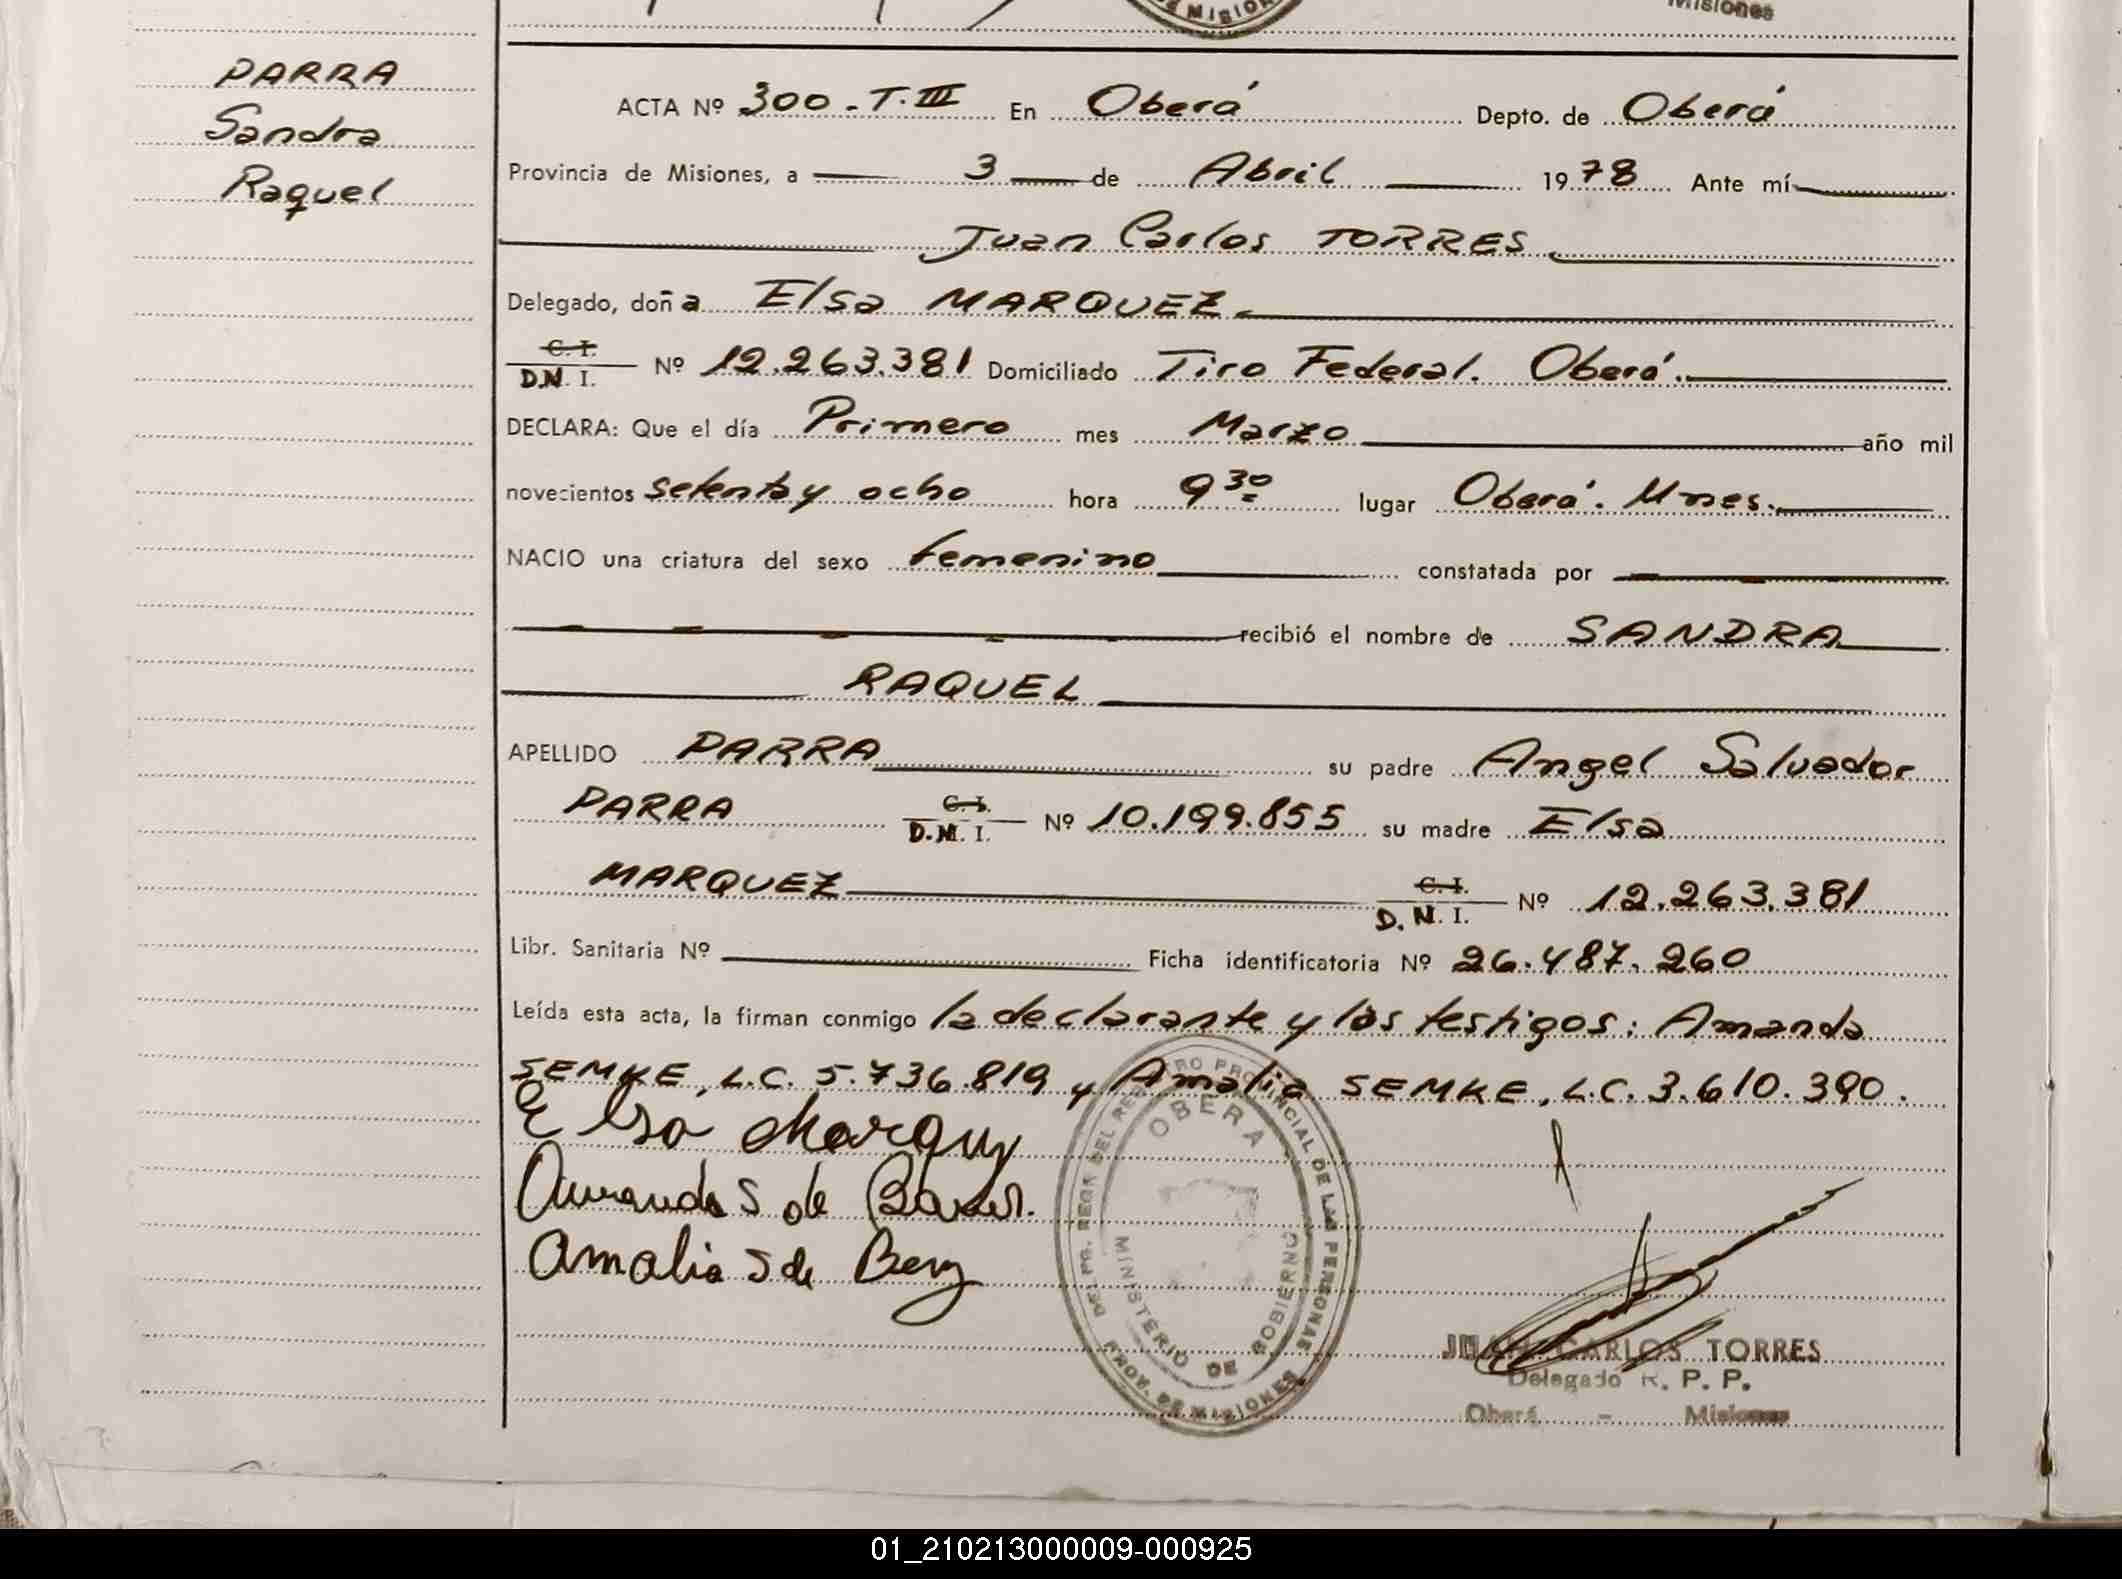 Misiones
PARRA
Sandra
Raquel
ACTA Nº 300 - T. III En Oberá Depto. de Oberá
Provincia de Misiones, a 3 de Abril 1978 Ante mí
Juan Carlos TORRES
Delegado, doña Elsa MARQUEZ
C. I.
D.N.I. Nº 12.263.381 Domiciliado Tiro Federal. Oberá.
DECLARA: Que el día Primero mes Marzo año mil
novecientos setenta y ocho hora 9 30 lugar Oberá. Mnes.
NACIO una criatura del sexo femenino constatada por
recibió el nombre de SANDRA
RAQUEL
APELLIDO PARRA su padre Angel Salvador
PARRA C. I. D.N.I. Nº 10.199.855 su madre Elsa
MARQUEZ C. I. D.N.I. Nº 12.263.381
Libr. Sanitaria Nº Ficha identificatoria Nº 26.487.260
Leída esta acta, la firman conmigo la declarante y los testigos: Amanda
SEMKE, L.C. 5.736.819 y Amalia SEMKE, L.C. 3.610.390.
Elsa Marquez
Amanda S de
Amalia S de
OBERA
MINISTERIO DE GOBIERNO
REGISTRO PROVINCIAL DE LAS PERSONAS
PROV. DE MISIONES
JUAN CARLOS TORRES
Delegado R. P. P.
Oberá - Misiones
01_210213000009-000925